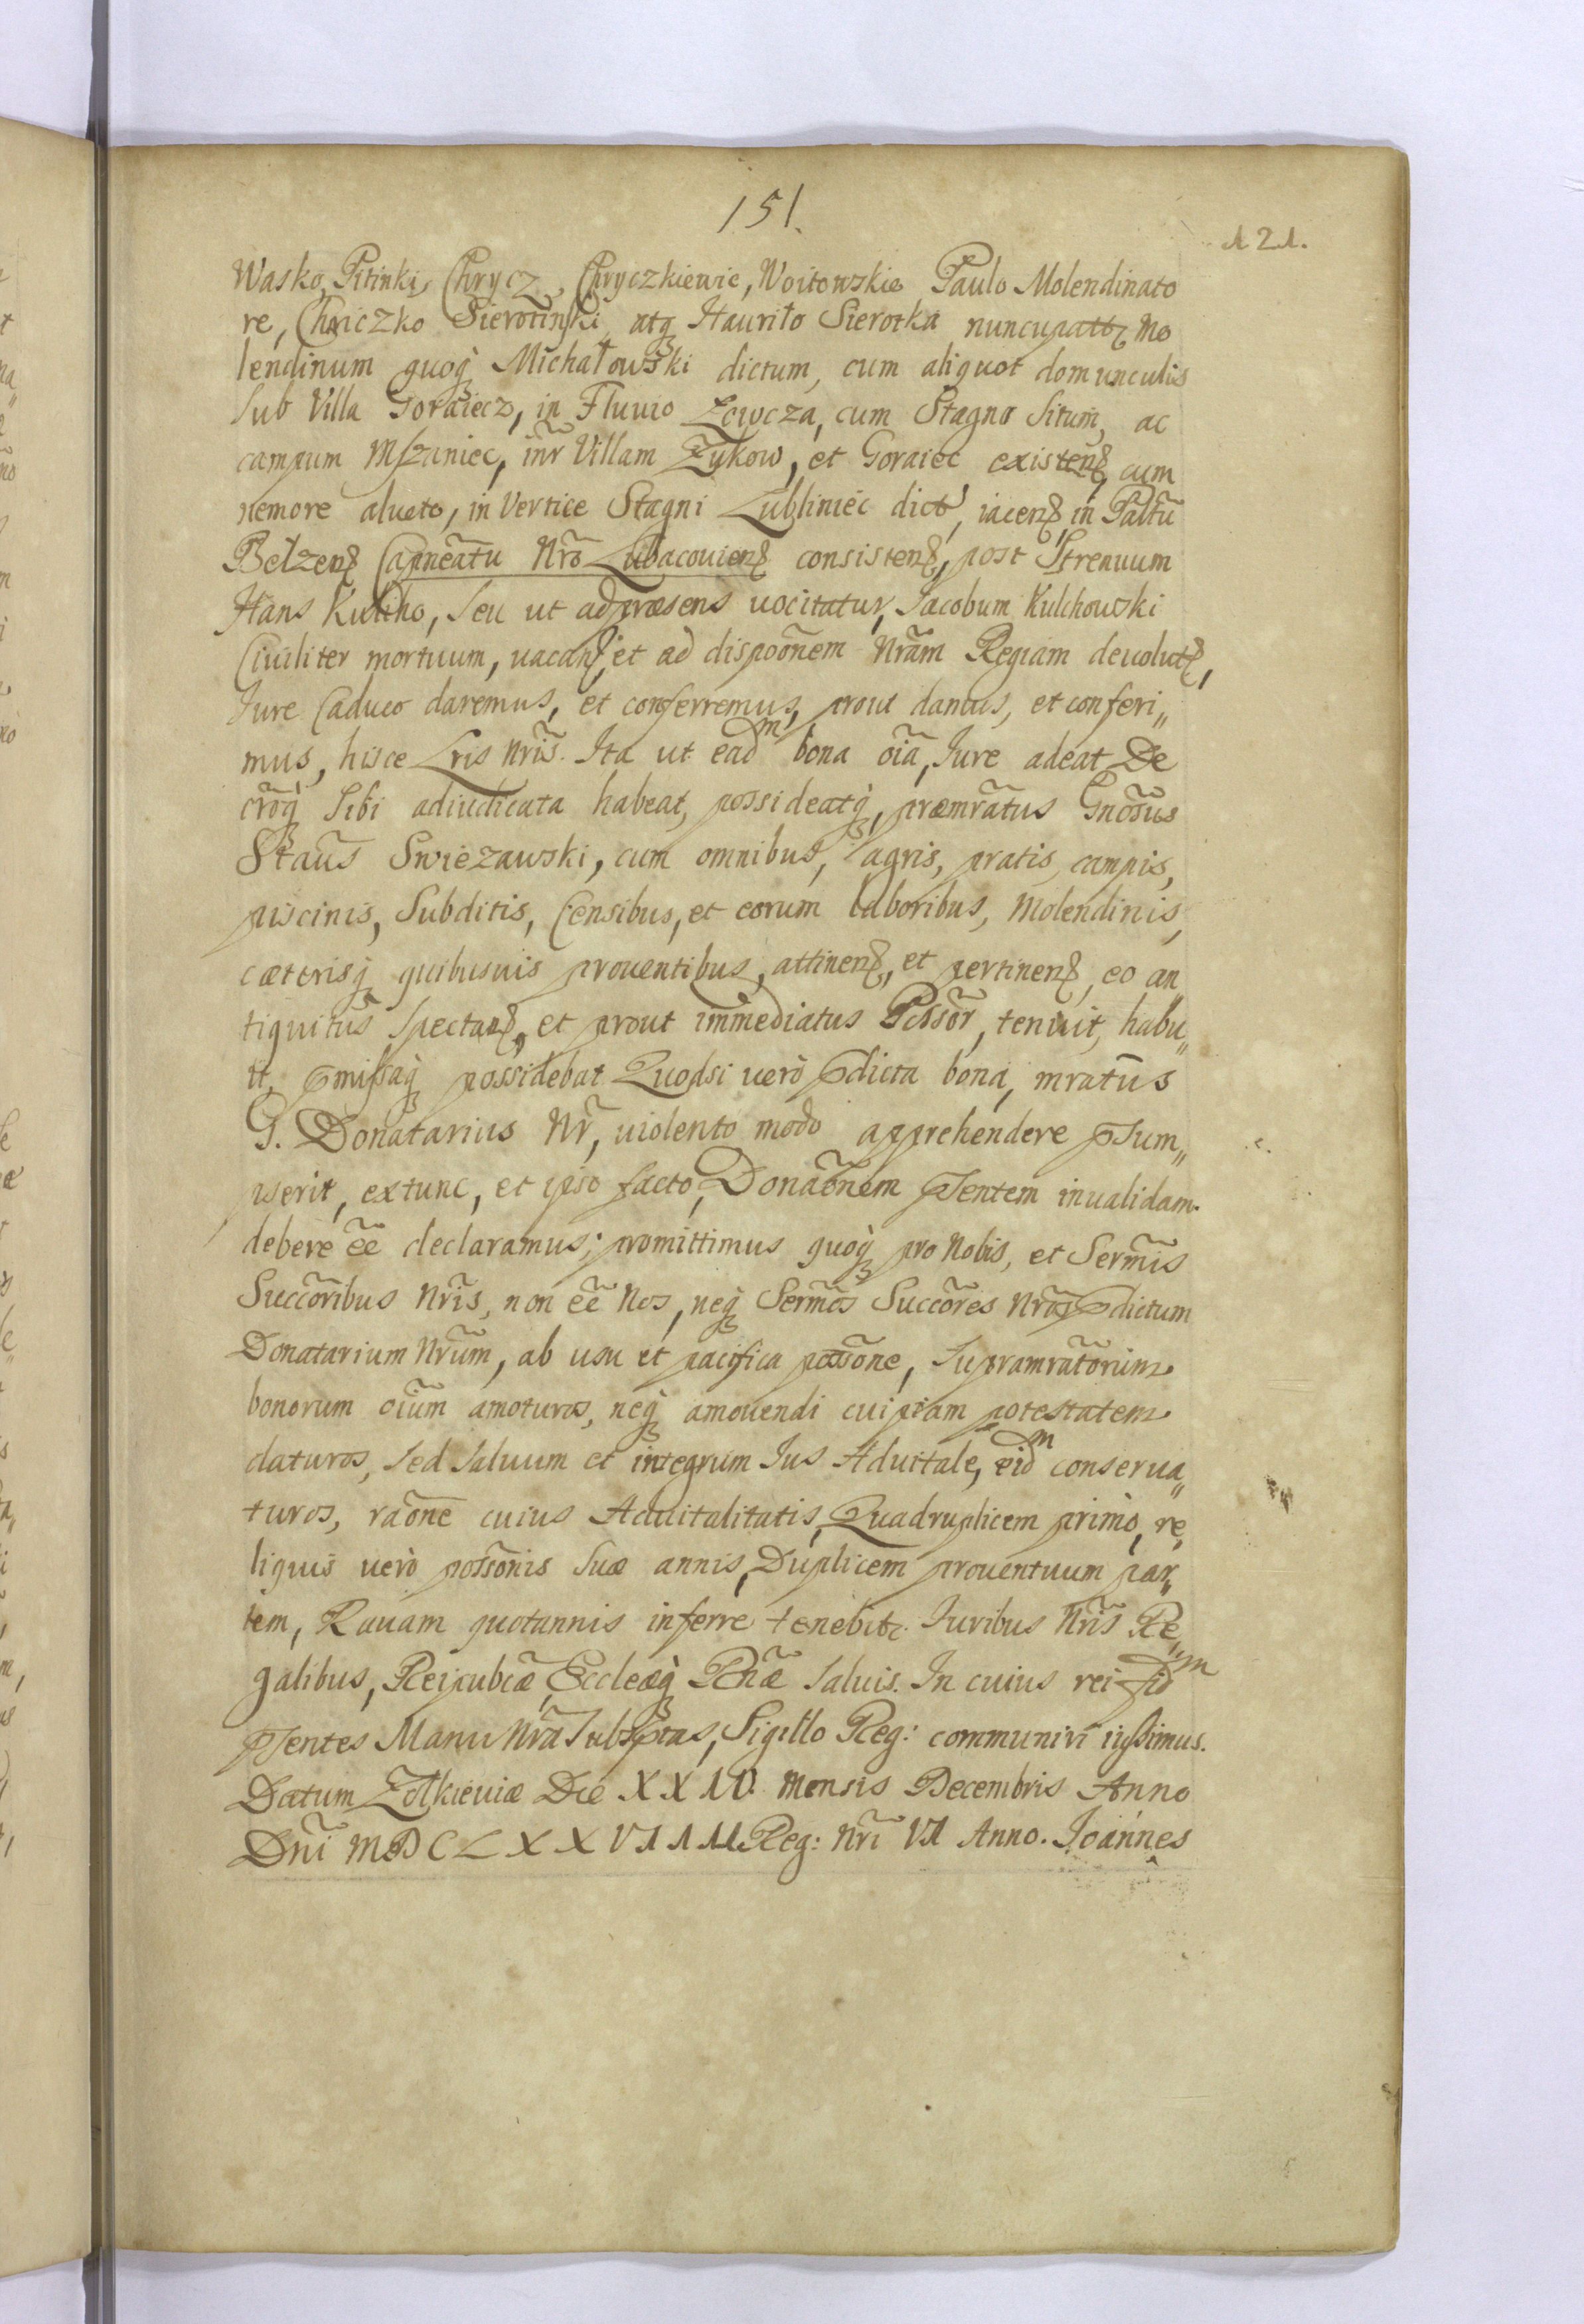 151.
121.
Wasko Pitinki, Chrycz, Chryczkiewic, Woitowskie Paulo Molendinato
re, Chriczko Sierotinski, atq̃ Hauriło Sierotka nuncupattꝫ Mo
lendinum quoq̀ Michałowski dictum, cum aliquot domunculis
Sub Villa Goraiecz, in Fluuio Łowcza, cum Stagno Situm, ac
campum Mszaniec, inr̃ Villam Zykow, et Goraiec existenꝭ, cum
nemore alueto, in Vertice Stagni Lubliniec dictꝭ, iacenꝭ, in Paltũ
Belzenꝭ Capneãtu Nrõ Lubacouienꝭ consistenꝭ, post Strenuum
Hans Kulcho, Seu ut adpræsens uocitatur, Jacobum Kulchowski
Ciuiliter mortuum, uacanꝭ, et ad dispoõnem Nrãm Regiam deuolutꝭ,
Jure Caduco daremus, et conferremus, prout damus, et conferi„
mus, hisce Lris nrĩs. Ita ut eadm bona oĩa, Iure adeat De
crõq̀ Sibi adiudicata habeat, possideatq̀, præmrãtus Gnõsus
Staũs Swiezawski, cum omnibus, agris, pratis, campis,
piscinis, Subditis, Censibus, et eorum laboribus, Molendinis,
cæterisq̀ quibusuis prouentibus, attinenꝭ, et pertinenꝭ, eo an
tiquitũs Spectanꝭ, et prout immediatus Possõr, tenuit, habu„
it, pmißaq̀ possidebat. Quodsi uerò pdicta bona, mratũs
G. Donatarius Nr̃, uiolento modo apprehendere psum„
pserit, extunc, et ipso facto, Donaõnem psentem inualidam
debere eẽ declaramus; promittimus quoq̀ pro Nobis, et Sermĩs
Succõribus Nrĩs, non eẽ Nos, neq̀ Sermõs Succõres Nrõs pdictum
Donatarium Nrũm, ab usu et pacifica possõne, Supramratõrum
bonorum oĩum amoturos, neq̀ amouendi cuipiam potestatem
daturos, Sed Saluum et integrum Ius Aduitale, eidm conserua„
turos, raõne cuius Aduitalitatis, Quadruplicem primò, re„
liquis uerò possõnis Suæ annis, Duplicem prouentuum par„
tem, Rauam quotannis inferre tenebitꝫ. Iuribus Nrĩs Re„
galibus, Reipubcæ̃, Eccleæq̀ Rñæ Saluis. In cuius rei fidm
psentes Manu Nrã Subscptas, Sigillo Reg: communiri iußimus.
Datum Zolkieuiæ Die XXIV. Mensis Decembris Anno
Dnĩ MDCLXXVIIII. Reg: Nrĩ VI Anno. Joánnes